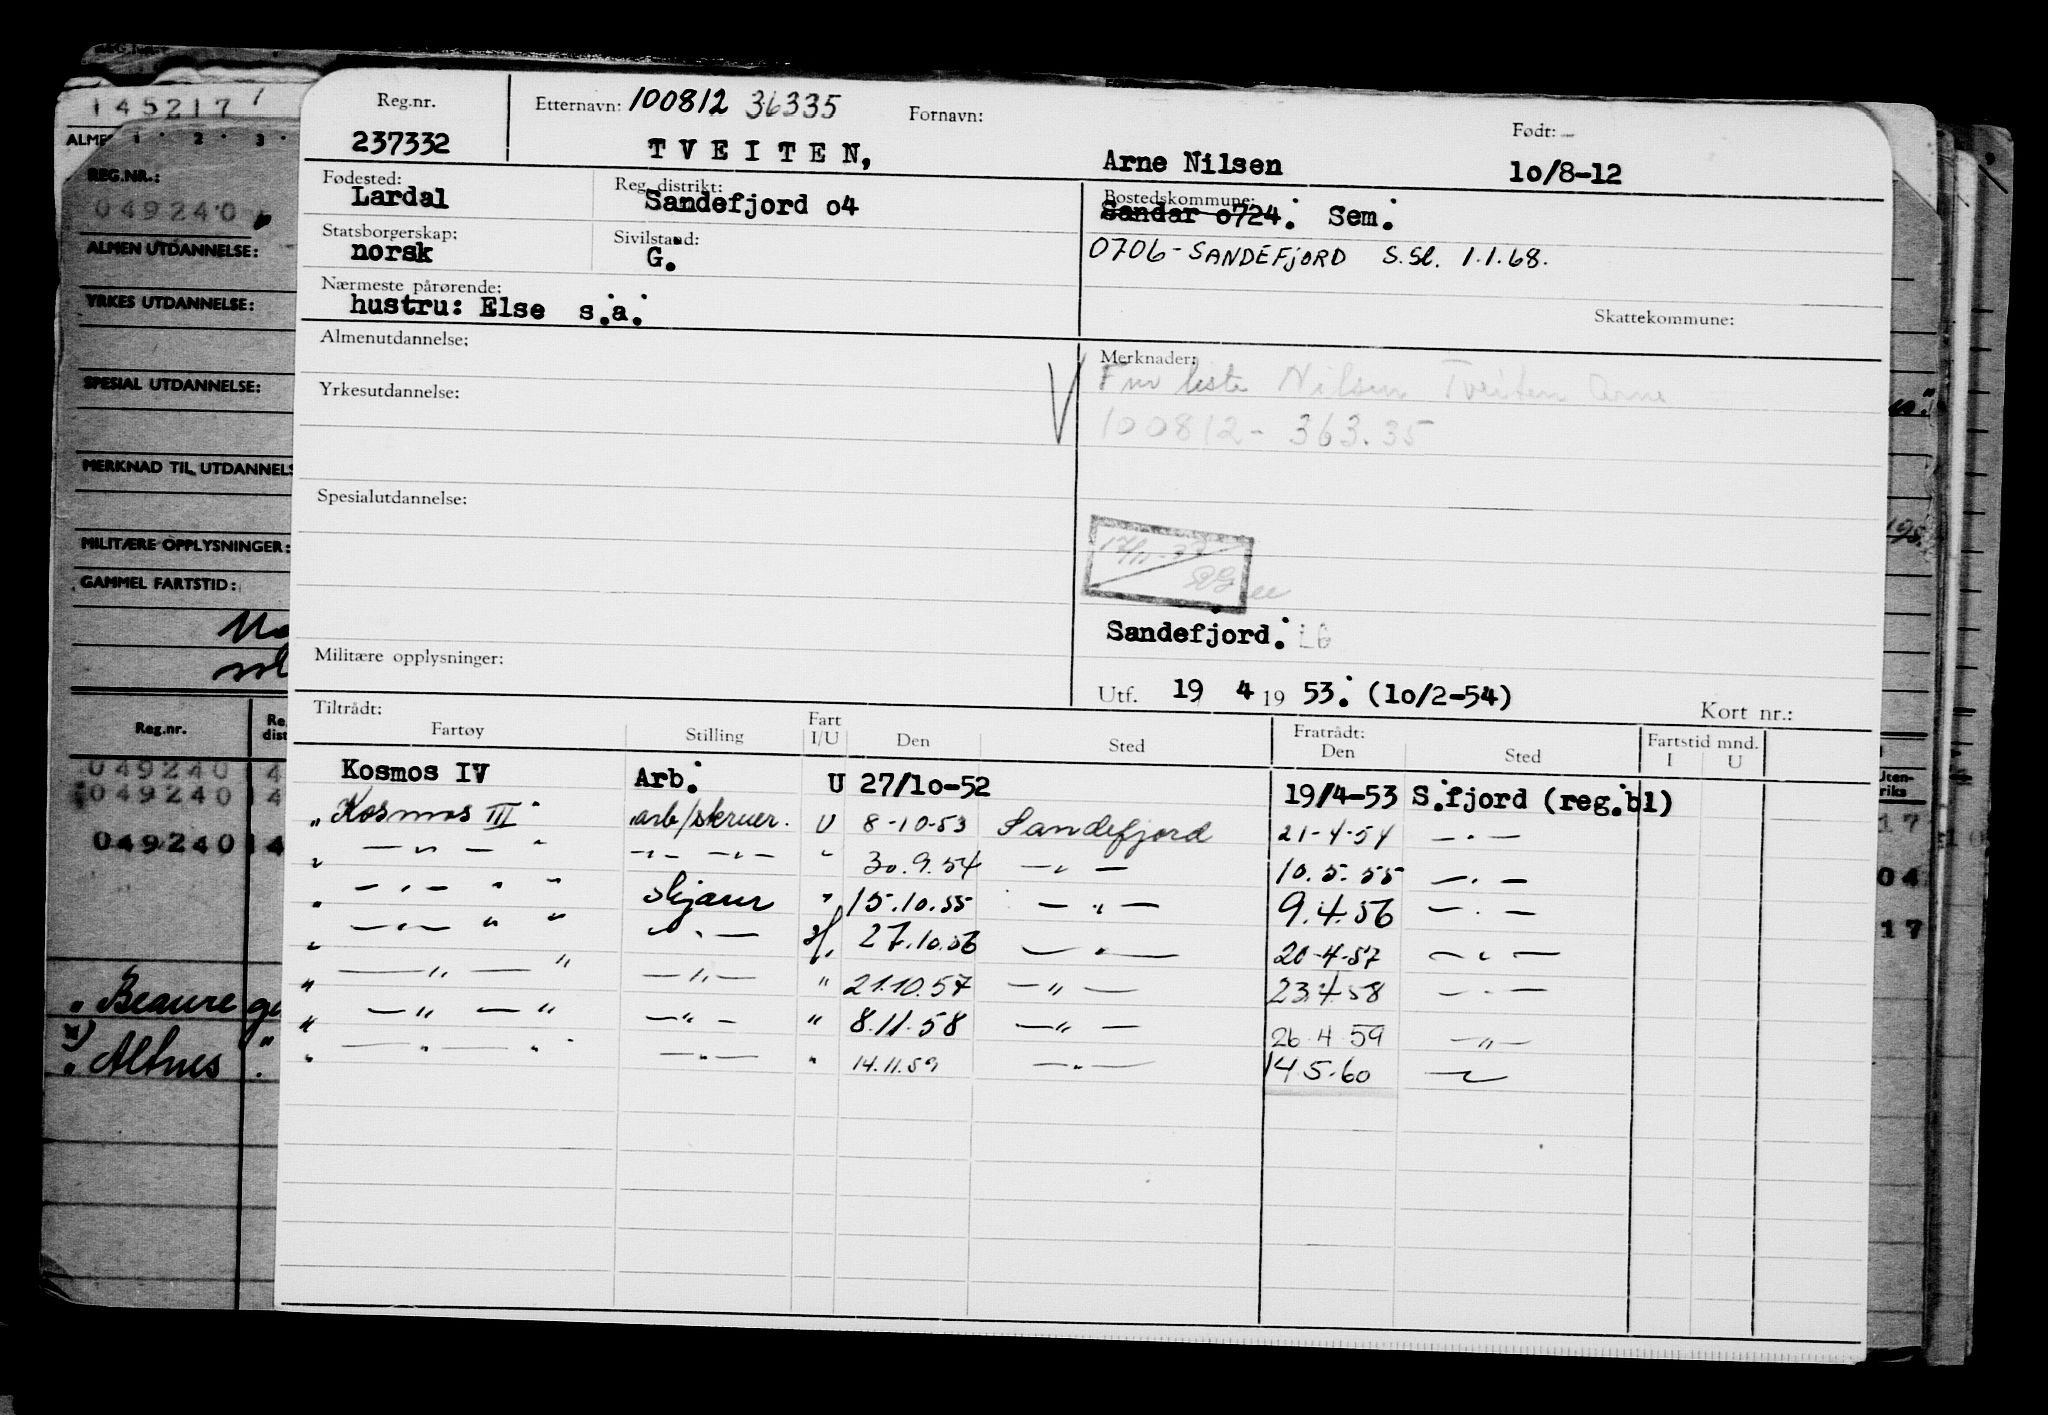 145217
ALME 1 2 3
REG.NR.:
049240
ALMEN UTDANNELSE:
YRKES UTDANNELSE:
SPESIAL UTDANNELSE:
MERKNAD TIL UTDANNELS
MILITÆRE OPPLYSNINGER:
GAMMEL FARTSTID:
Reg.nr. Re. dist
049240 4
049240 4
049240 4
„ Beaure
„ Altnes „
Reg.nr. Etternavn: 100812 36335 Fornavn: Født:
237332 TVEITEN, Arne Nilsen 10/8-12
Fødested: Reg. distrikt: Bostedskommune:
Lardal Sandefjord o4 Sandar o724. Sem.
Statsborgerskap: Sivilstand: 0706 - SANDEFJORD S.Sl. 1.1.68.
norsk G.
Nærmeste pårørende:
hustru: Else s.a. Skattekommune:
Almenutdannelse: Merknader:
Nilsen Tveiten Arne
Yrkesutdannelse: 100812 - 363.35
Spesialutdannelse:
Sandefjord.
Militære opplysninger:
Utf. 19 4 19 53. (10/2-54) Kort nr.:
Tiltrådt: Fratrådt: Fartstid mnd.
Fartøy Stilling Fart I/U Den Sted Den Sted I U
Kosmos IV Arb. U 27/10-52 19/4-53 S.fjord (reg.bl)
„ Kosmos III arb/skruer. U 8-10-53 Sandefjord 21-4-54 — " —
„ — " — " — " — — " — " 30.9.54 — " — 10.5.55 — " —
„ — " — " " Skjærer " 15.10.55 — " — 9.4.56 — " —
„ — " — " " — " — 27.10.56 — " — 20-4-57 — " —
" — " — " — " — " 21.10.57 — " — 23.4.58 — " —
" — " — " — " — " 8.11.58 — " — 26.4.59 — " —
" — " — " " — " — " 14.11.59 — " — 14.5.60 — " —
17
04
17